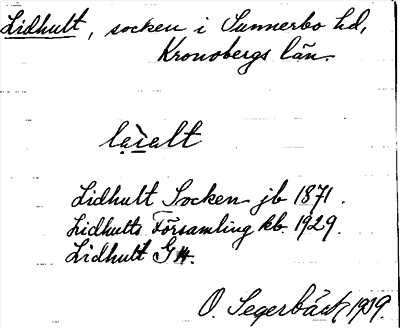 Lidhult, socken i Sunnerbo hd,
Kronobergs län.
Lidhult Socken jb 1871.
Lidhults Församling kb. 1929.
Lidhult G
O. Segerbäck 1929.